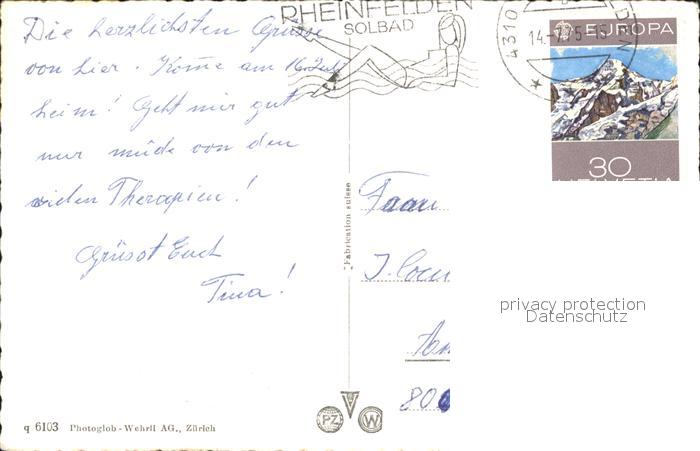 Die herzlichsten Grüsse
von hier. Komme am 16. Juli
heim! Geht mir gut
nur müde von den
vielen Therapien!
Grüsst Euch
Tina!
RHEINFELDEN
SOLBAD
4310
14.-7.75-15
EUROPA
30
HELVETIA
Fabrication suisse
Frau
80
privacy protection
Datenschutz
q 6103 Photoglob-Wehrli AG., Zürich
PZ W